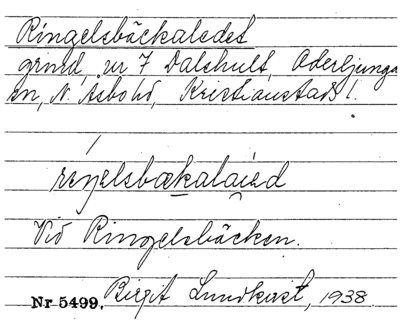 Ringelsbäckaledet
grind, nr 7 Dalshult, Oderljunga
sn, N. Åsbo hd, Kristianstads l.
reŋelsbækalaied
Vid Ringelsbäcken.
Nr 5499. Birgit Lundkvist, 1938.